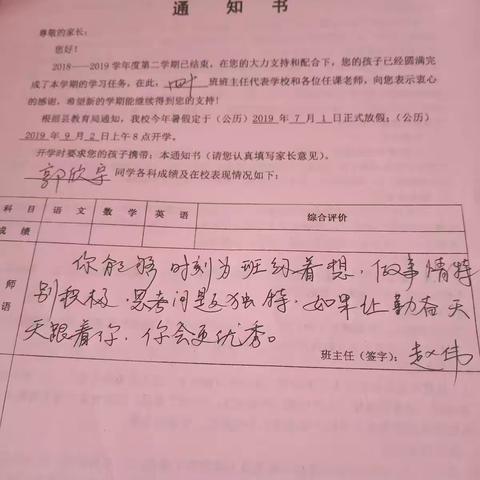 通 知 书
尊敬的家长：
您好！
2018——2019学年度第二学期已结束，在您的大力支持和配合下，您的孩子已经圆满完
成了本学期的学习任务，在此，四十班班主任代表学校和各位任课老师，向您表示衷心
的感谢，希望新的学期能继续得到您的支持！
根据县教育局通知，我校今年暑假定于（公历）2019 年 7 月 1 日正式放假；（公历）
2019 年 9 月 2 日上午 8 点开学。
开学时要求您的孩子携带：本通知书（请您认真填写家长意见）。
郭欣宇同学各科成绩及在校表现情况如下：
科 目 语 文 数 学 英 语 综合评价
成 绩
师
语
你能够时刻为班级着想，做事情特
别积极，思考问题独特，如果让勤奋天
天跟着你，你会更优秀。
班主任（签字）：赵伟